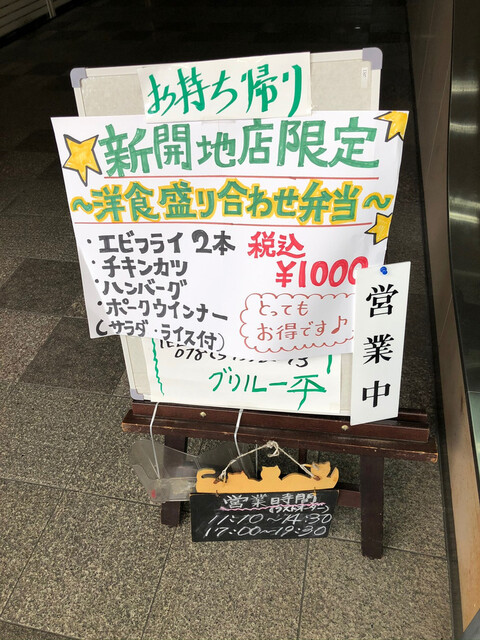 お持ち帰り
新開地店限定
～洋食盛り合わせ弁当～
・エビフライ 2本
・チキンカツ
・ハンバーグ
・ポークウインナー
(サラダ・ライス付)
税込
¥1000
とっても
お得です♪
グリル一平
営業中
営業時間
(ラストオーダー)
11:10～14:30
17:00～19:30